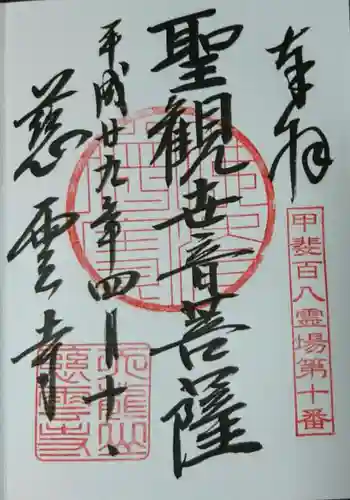 奉拝
甲斐百八霊場第十番
聖観世音菩薩
平成廿九年四月十
慈雲寺
慈雲寺